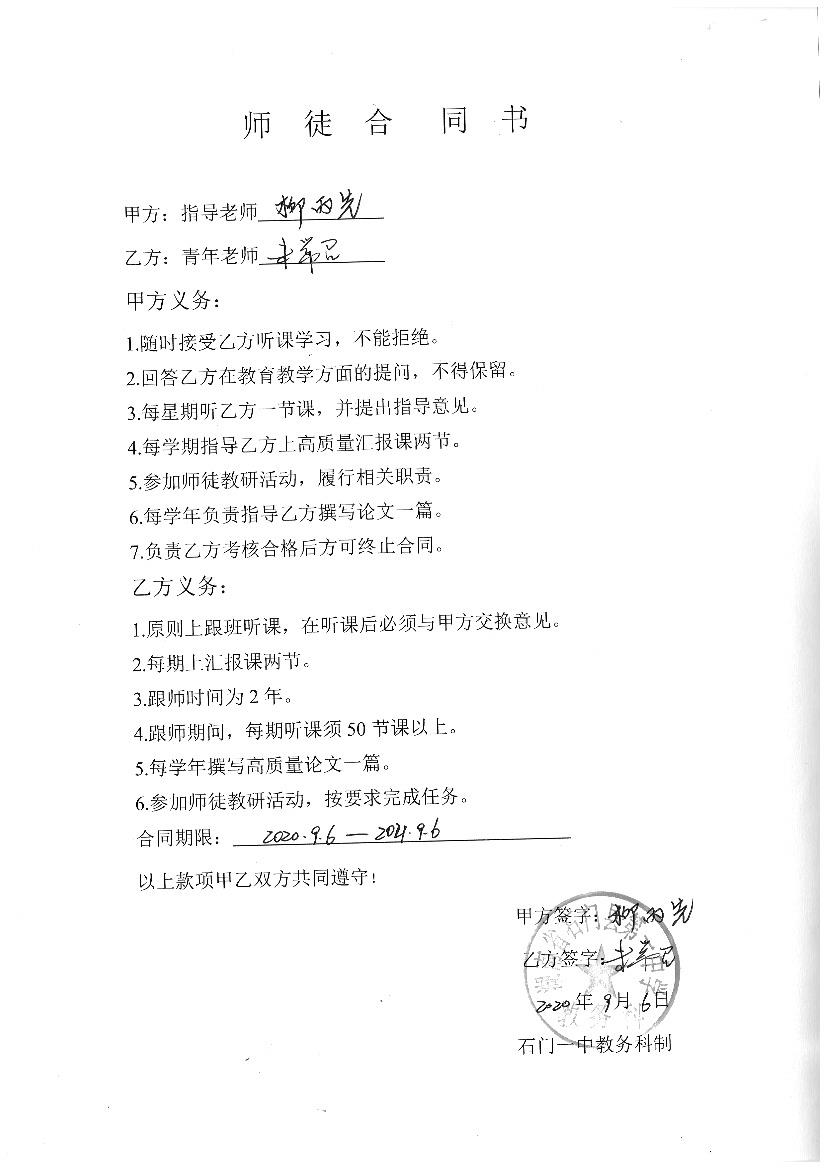 师徒合同书
甲方：指导老师 柳西尧
乙方：青年老师
甲方义务：
1.随时接受乙方听课学习，不能拒绝。
2.回答乙方在教育教学方面的提问，不得保留。
3.每星期听乙方一节课，并提出指导意见。
4.每学期指导乙方上高质量汇报课两节。
5.参加师徒教研活动，履行相关职责。
6.每学年负责指导乙方撰写论文一篇。
7.负责乙方考核合格后方可终止合同。
乙方义务：
1.原则上跟班听课，在听课后必须与甲方交换意见。
2.每期上汇报课两节。
3.跟师时间为2年。
4.跟师期间，每期听课须50节课以上。
5.每学年撰写高质量论文一篇。
6.参加师徒教研活动，按要求完成任务。
合同期限：2020.9.6—2021.9.6
以上款项甲乙双方共同遵守！
甲方签字：
乙方签字：
2020年9月6日
石门一中教务科制
教务科